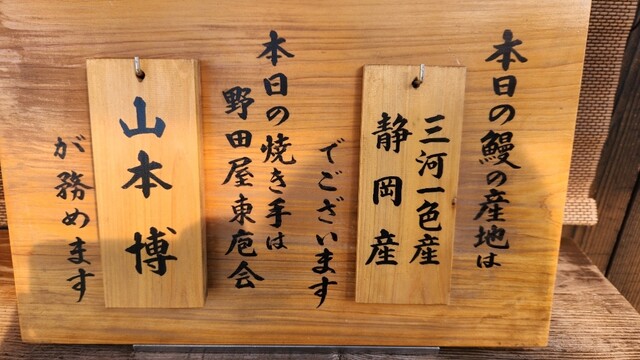 本日の鰻の産地は
三河一色産
静岡産
でございます
本日の焼き手は
野田屋東庖会
山本博
が務めます